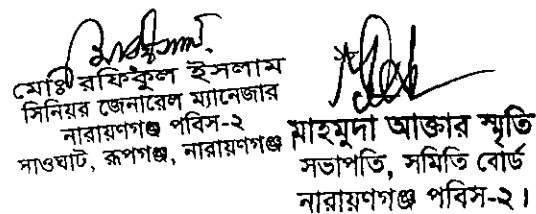 মোঃ রফিকুল ইসলাম
সিনিয়র জেনারেল ম্যানেজার
নারায়ণগঞ্জ পবিস-২
সাওঘাট, রূপগঞ্জ, নারায়ণগঞ্জ
মাহমুদা আক্তার স্মৃতি
সভাপতি, সমিতি বোর্ড
নারায়ণগঞ্জ পবিস-২।